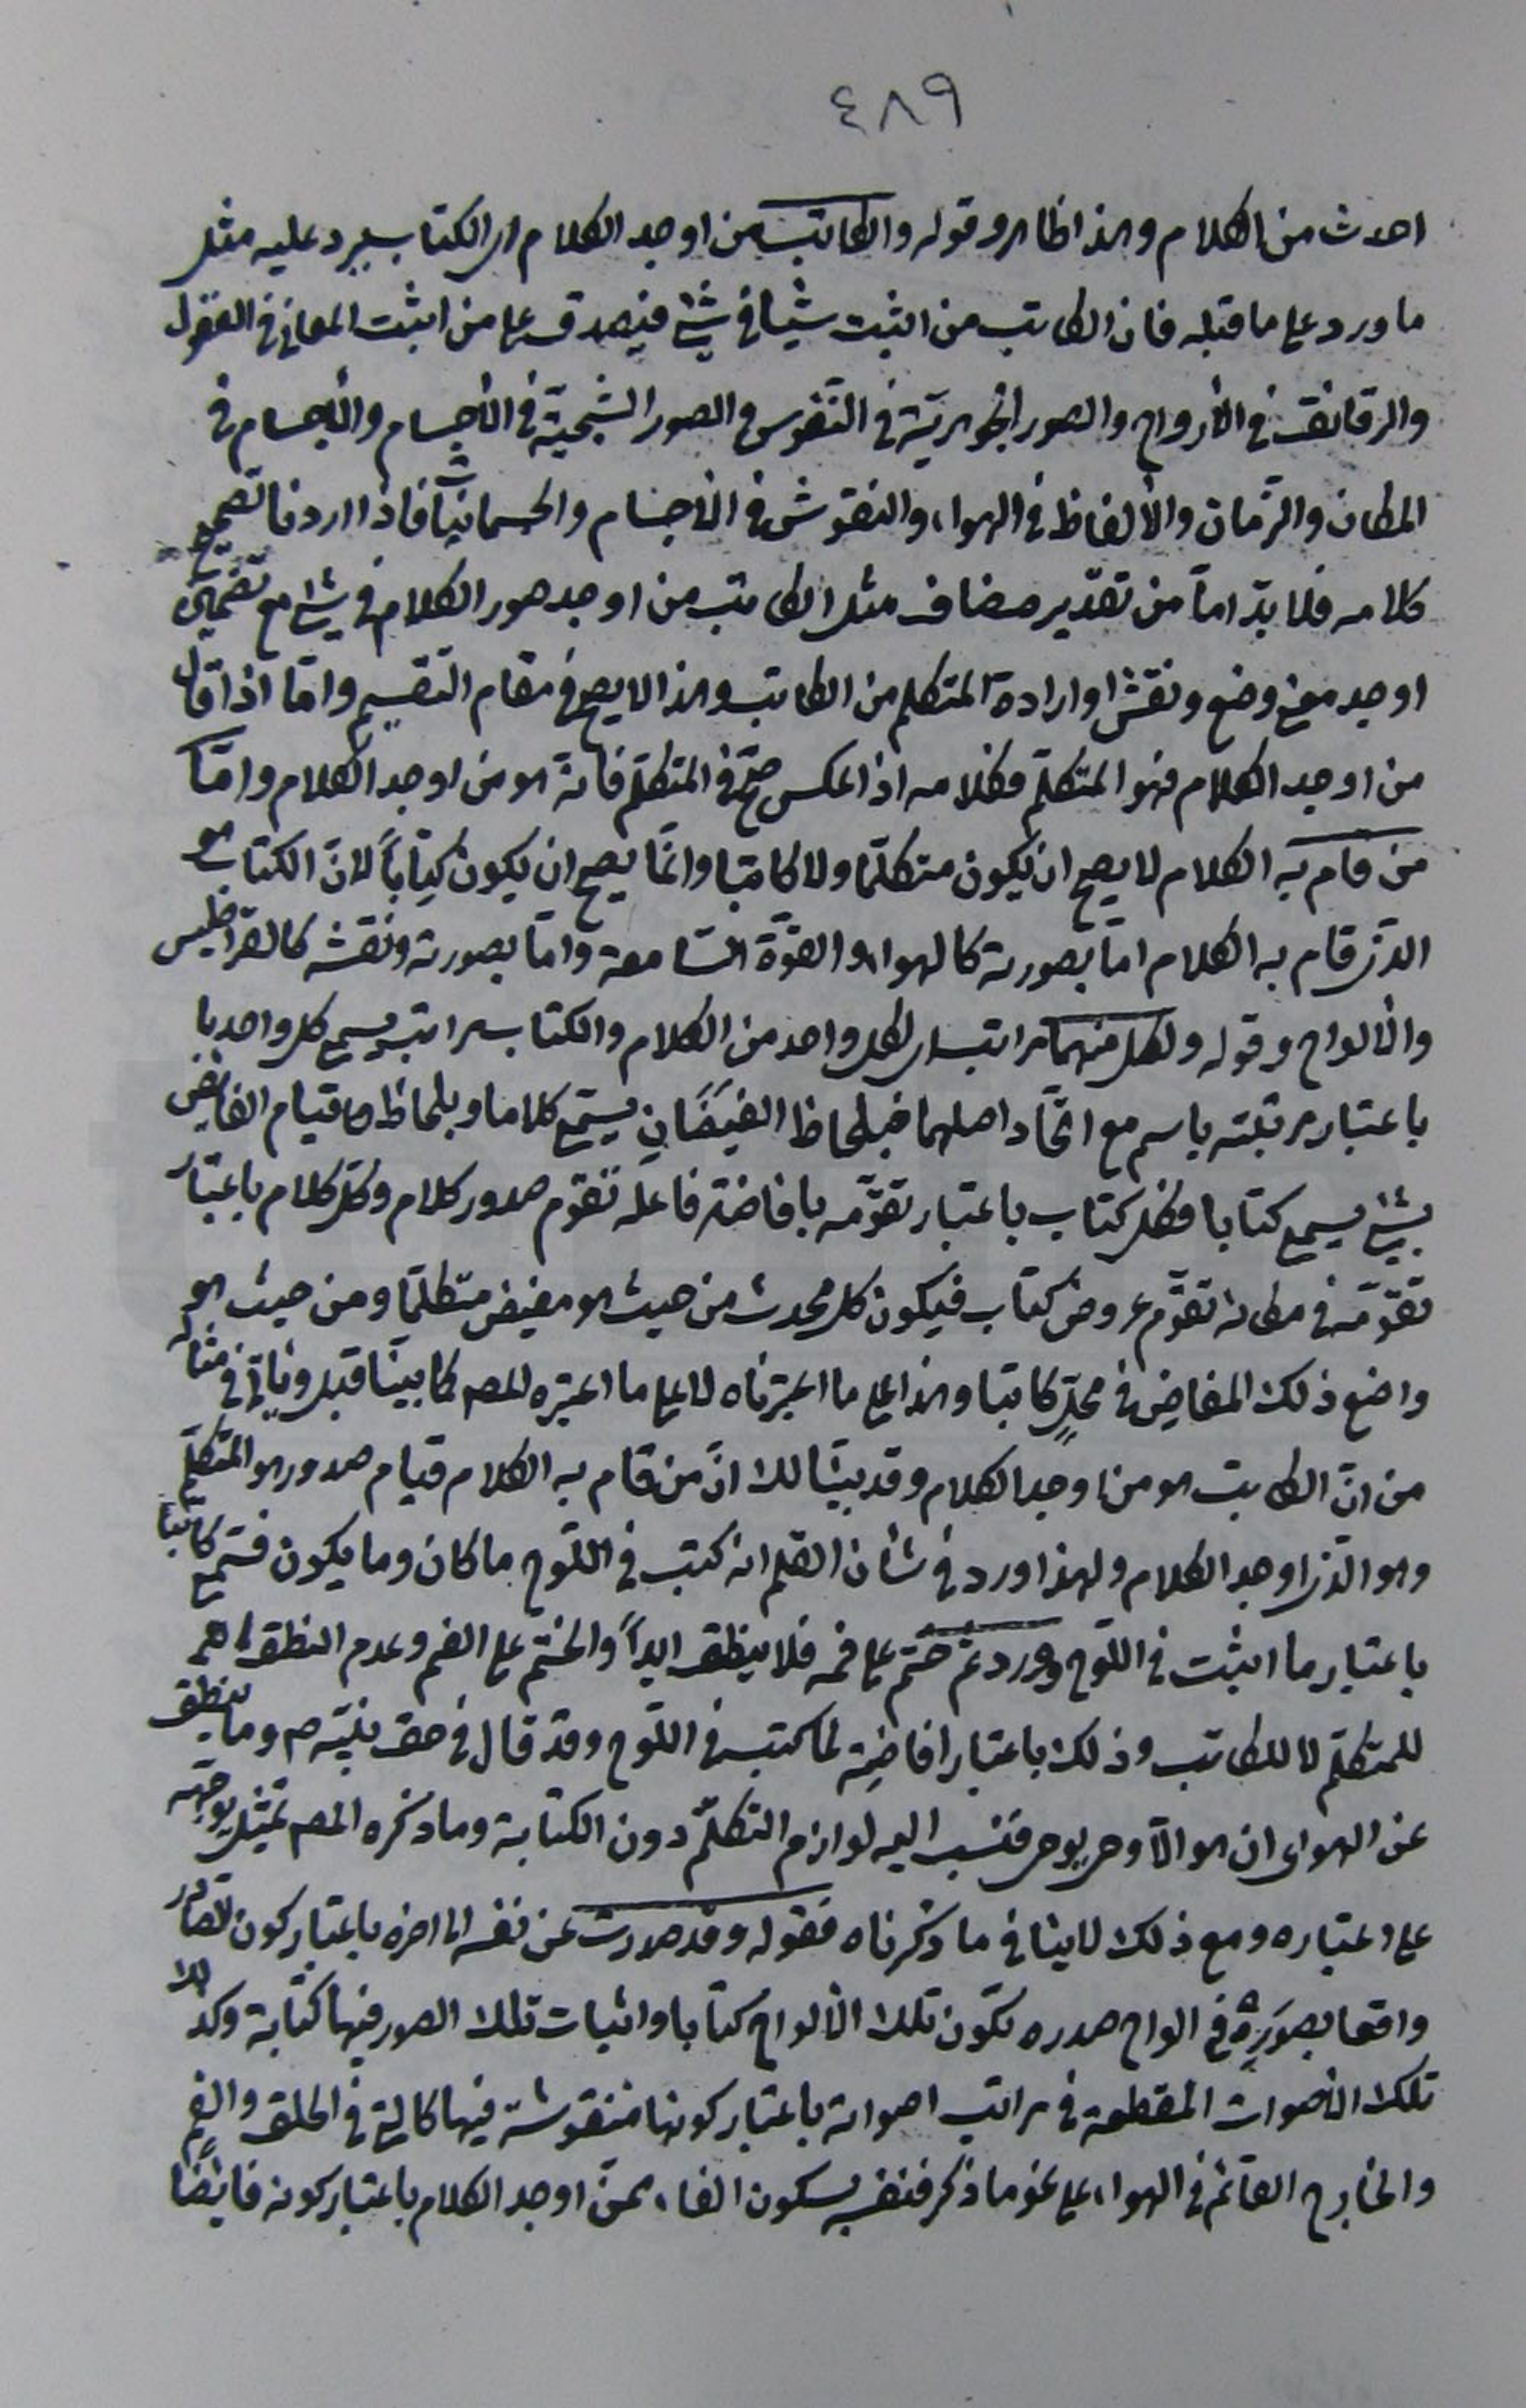 ٤٨٩
احدث من الكلام وهذا ظاهر وقوله والكاتب من اوجد الكلام اى الكتاب يرد عليه مثل
ما ورد على ما قبله فان الكاتب من اثبت شيئا فى شئ فيصدق على من اثبت المعانى فى العقول
والرقائق فى الأرواح والصور الجوهريّة فى النّفوس والصور الشبحيّة فى الأجسام والأجسام فى
المكان والزّمان والألفاظ فى الهواء والنقوش فى الأجسام والجسمانيّات فاذا اردنا تصحيح
كلامه فلا بدّ امّا من تقدير مضاف مثل الكاتب من اوجد صور الكلام فى شئ مع تضمين
اوجد معنى وضع ونقش او ارادة المتكلم من الكاتب وهذا لا يصح فى مقام التقسيم وامّا اذا قال
من اوجد الكلام فهو المتكلّم فكلامه اذا عكس صحّ فى المتكلّم فانّه هو من اوجد الكلام وامّا
من قام به الكلام لا يصح ان يكون متكلّما ولا كاتبا وانّما يصح ان يكون كتاباً لانّ الكتاب هو
الّذى قام به الكلام امّا بصورته كالهواء والقوّة السّامعة وامّا بصورته ونقشه كالقراطيس
والألواح وقوله ولكل منهما مراتب اى لكل واحد من الكلام والكتاب مراتب يسمى كل واحد با
باعتبار مرتبته باسم مع اتّحاد اصلهما فبلحاظ الفيضان يسمّى كلاما وبلحاظ قيام الفايض
بشئ يسمى كتابا فكل كتاب باعتبار تقوّمه بافاضة فاعله تقوم صدور كلام وكل كلام باعتبار
تقوّمه فى مكانه تقوّم عروض كتاب فيكون كل محدث من حيث هو مفيض متكلّما ومن حيث هو
واضع ذلك المفاض فى محلّ كاتبا وهذا على ما اعتبرناه لا على ما اعتبره المصـ كما بيّنّا قبل ويأتى فى مثاله
من انّ الكاتب هو من اوجد الكلام وقد بيّنا لك انّ من قام به الكلام قيام صدور هو المتكلّم
وهو الّذى اوجد الكلام ولهذا ورد فى شأن القلم انه كتب فى اللّوح ما كان وما يكون فسمّى كاتباً
باعتبار ما اثبت فى اللّوح وورد ثمّ ختم على فمه فلا ينطق ابداً والختم على الفم وعدم النطق انما هو
للمتكلّم لا للكاتب وذلك باعتبار افاضته لما كتب فى اللّوح وقد قال فى حق نبيّه صـ وما ينطق
عن الهوى ان هو الّا وحى يوحى فنسب اليه لوازم التكلّم دون الكتابة وما ذكره المصـ تمثيل يوجّه
على اعتباره ومع ذلك لا ينافى ما ذكرناه فقوله وقد صدرت عن نفسه الى اخره باعتبار كون الصّادر
واقعا بصوره فى الواح صدره تكون تلك الألواح كتابا واثبات تلك الصور فيها كتابة وكذلك
تلك الأصوات المقطعة فى مراتب اصواته باعتبار كونها منقوشة فيها كالّتى فى الحلق والفم
والخارج القائم فى الهواء على نحو ما ذكر فنفسه بسكون الفاء ممّن اوجد الكلام باعتبار كونه فايضًا